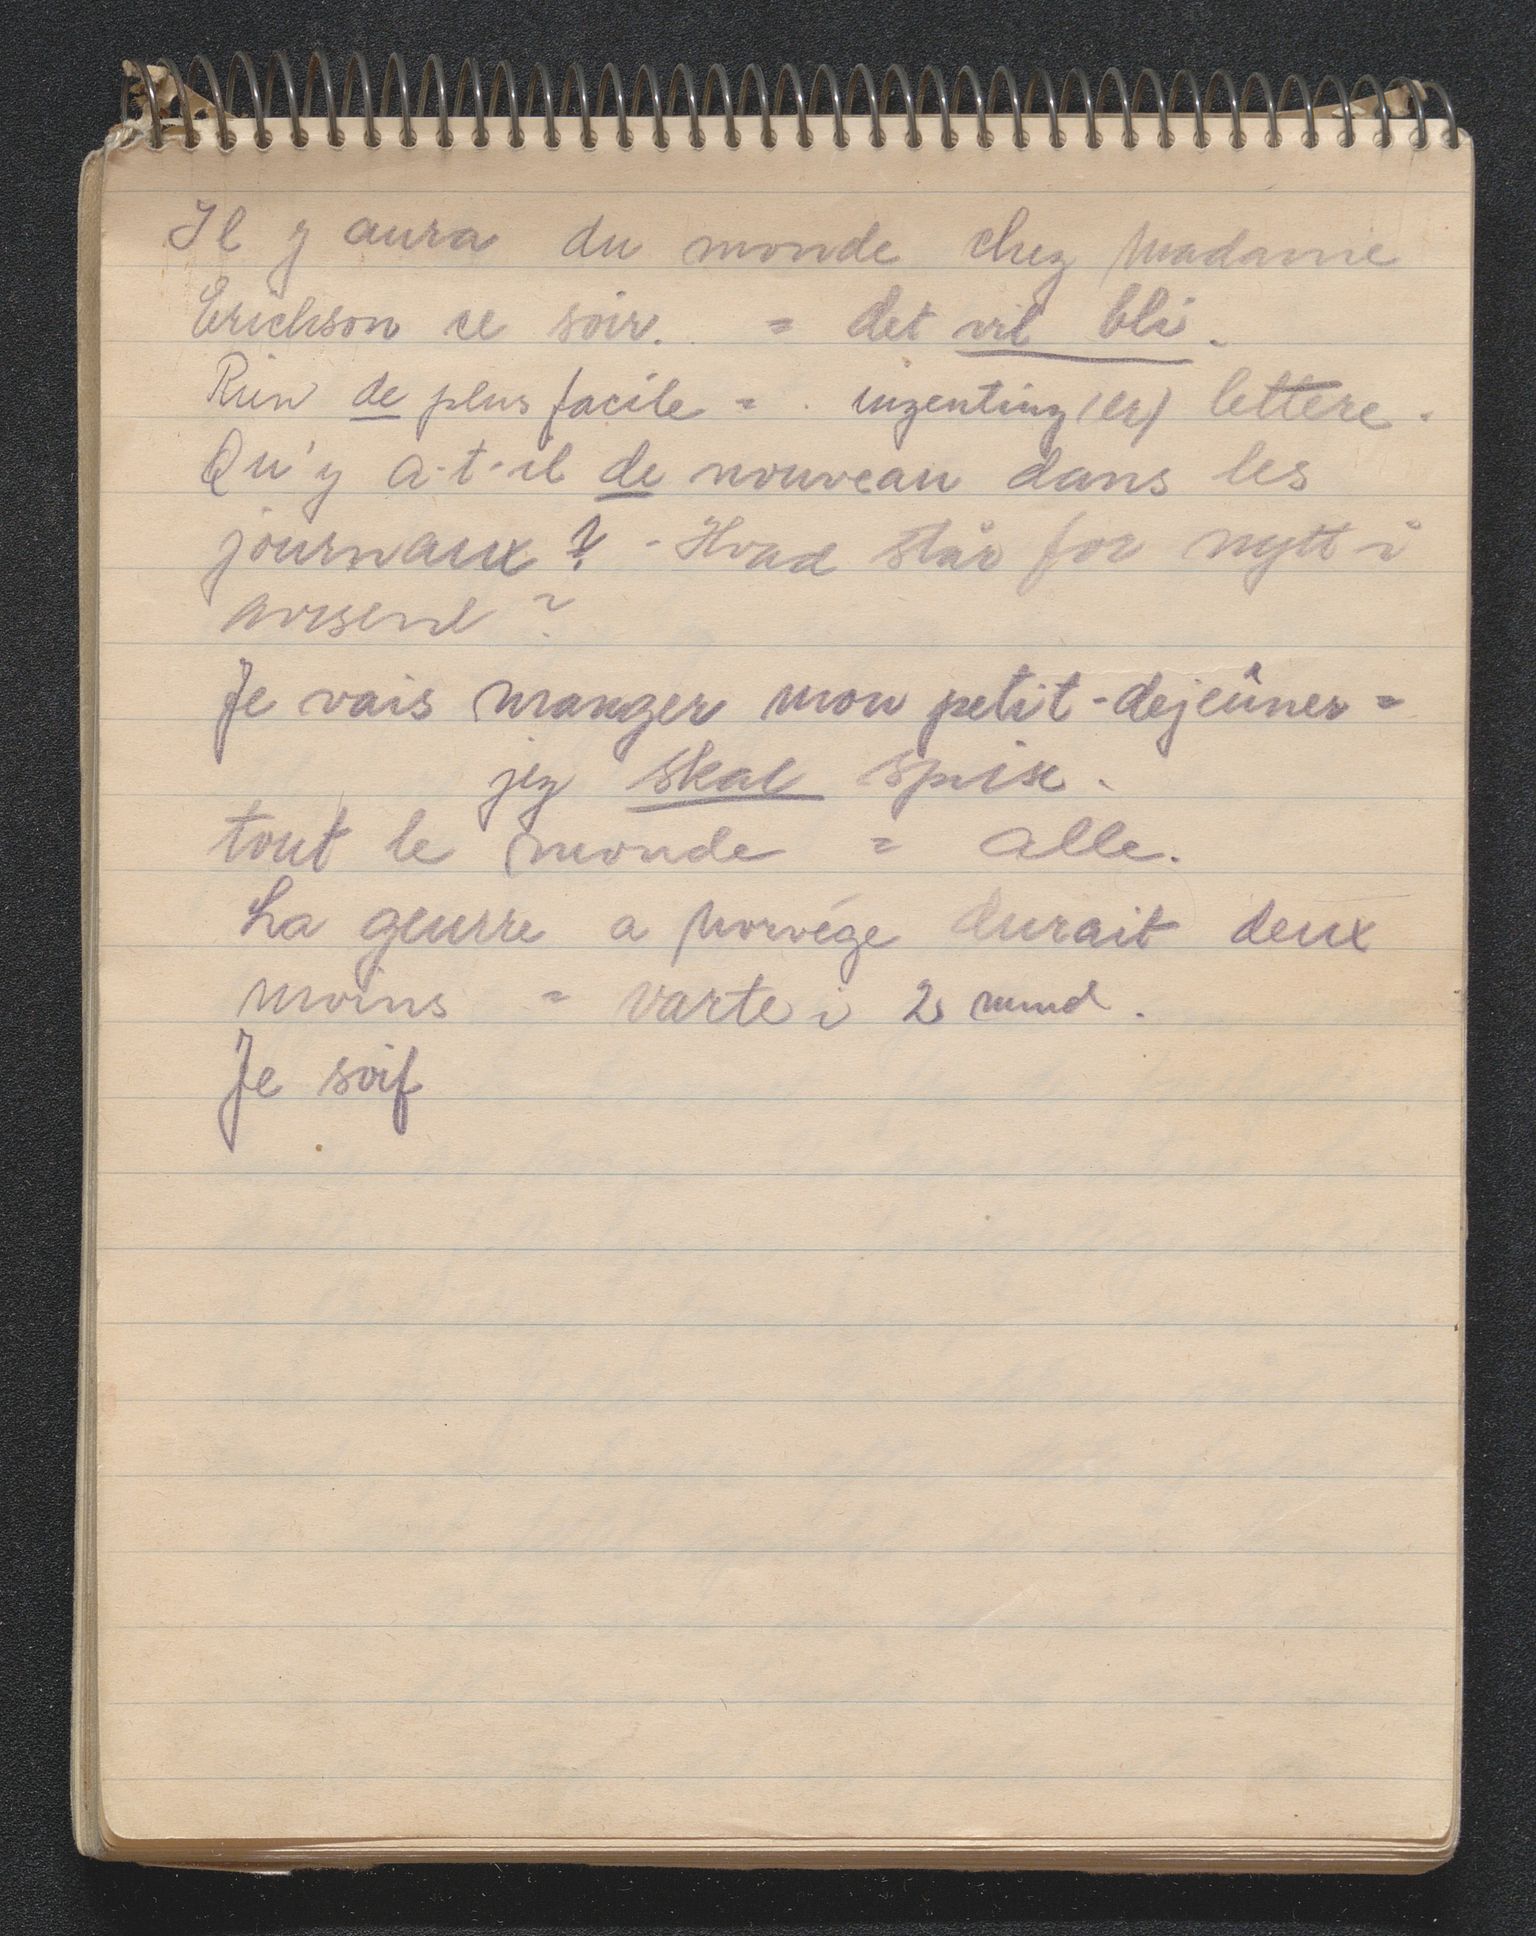 Il y aura du monde chez Madame
Erichson ce soir. = det vil bli.
Rien de plus facile = ingenting (er) lettere.
Qu'y a-t-il de nouveau dans les
journaux? - Hvad står for nytt i
avisene?
Je vais manger mon petit-dejeûner =
jeg skal spise.
tout le monde = alle.
La geurre a Norvége durait deux
moins = varte i 2 mnd.
Je soif